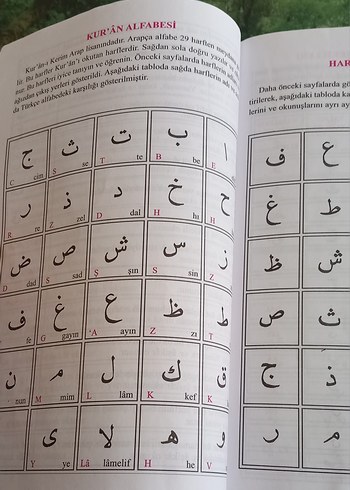 KUR'ÂN ALFABESİ
Kur'ân-ı Kerim Arap lisanındadır. Arapça alfabe 29 harften
lir. Bu harfler Kur'ân'ı okutan harflerdir. Sağdan sola doğru yazılır
nur. Bu harfleri iyice tanıyın ve öğrenin. Önceki sayfalarda harflerin
ağızdan çıkış yerleri gösterildi. Aşağıdaki tabloda sağda harflerin adı,
da Türkçe alfabedeki karşılığı gösterilmiştir.
ا ب ت ث ج
C cim S se T te B be E
ح خ د ذ ر
R re Z zel D dal H hı H
ز س ش ص ض
D dad S sad Ş şın S sin Z
ط ظ ع غ ف
fe G gayın 'A ayın Z zı T
ق ك ل م ن
nun M mim L lâm K kef K
و ه لا ى
Y ye Lâ lâmelif H he V
HAR
Daha önceki sayfalarda
tirilerek, aşağıdaki tabloda
lerini ve okunuşlarını ayrı
ع ف
ط غ
ش ظ
ث ص
ذ ج
م ر